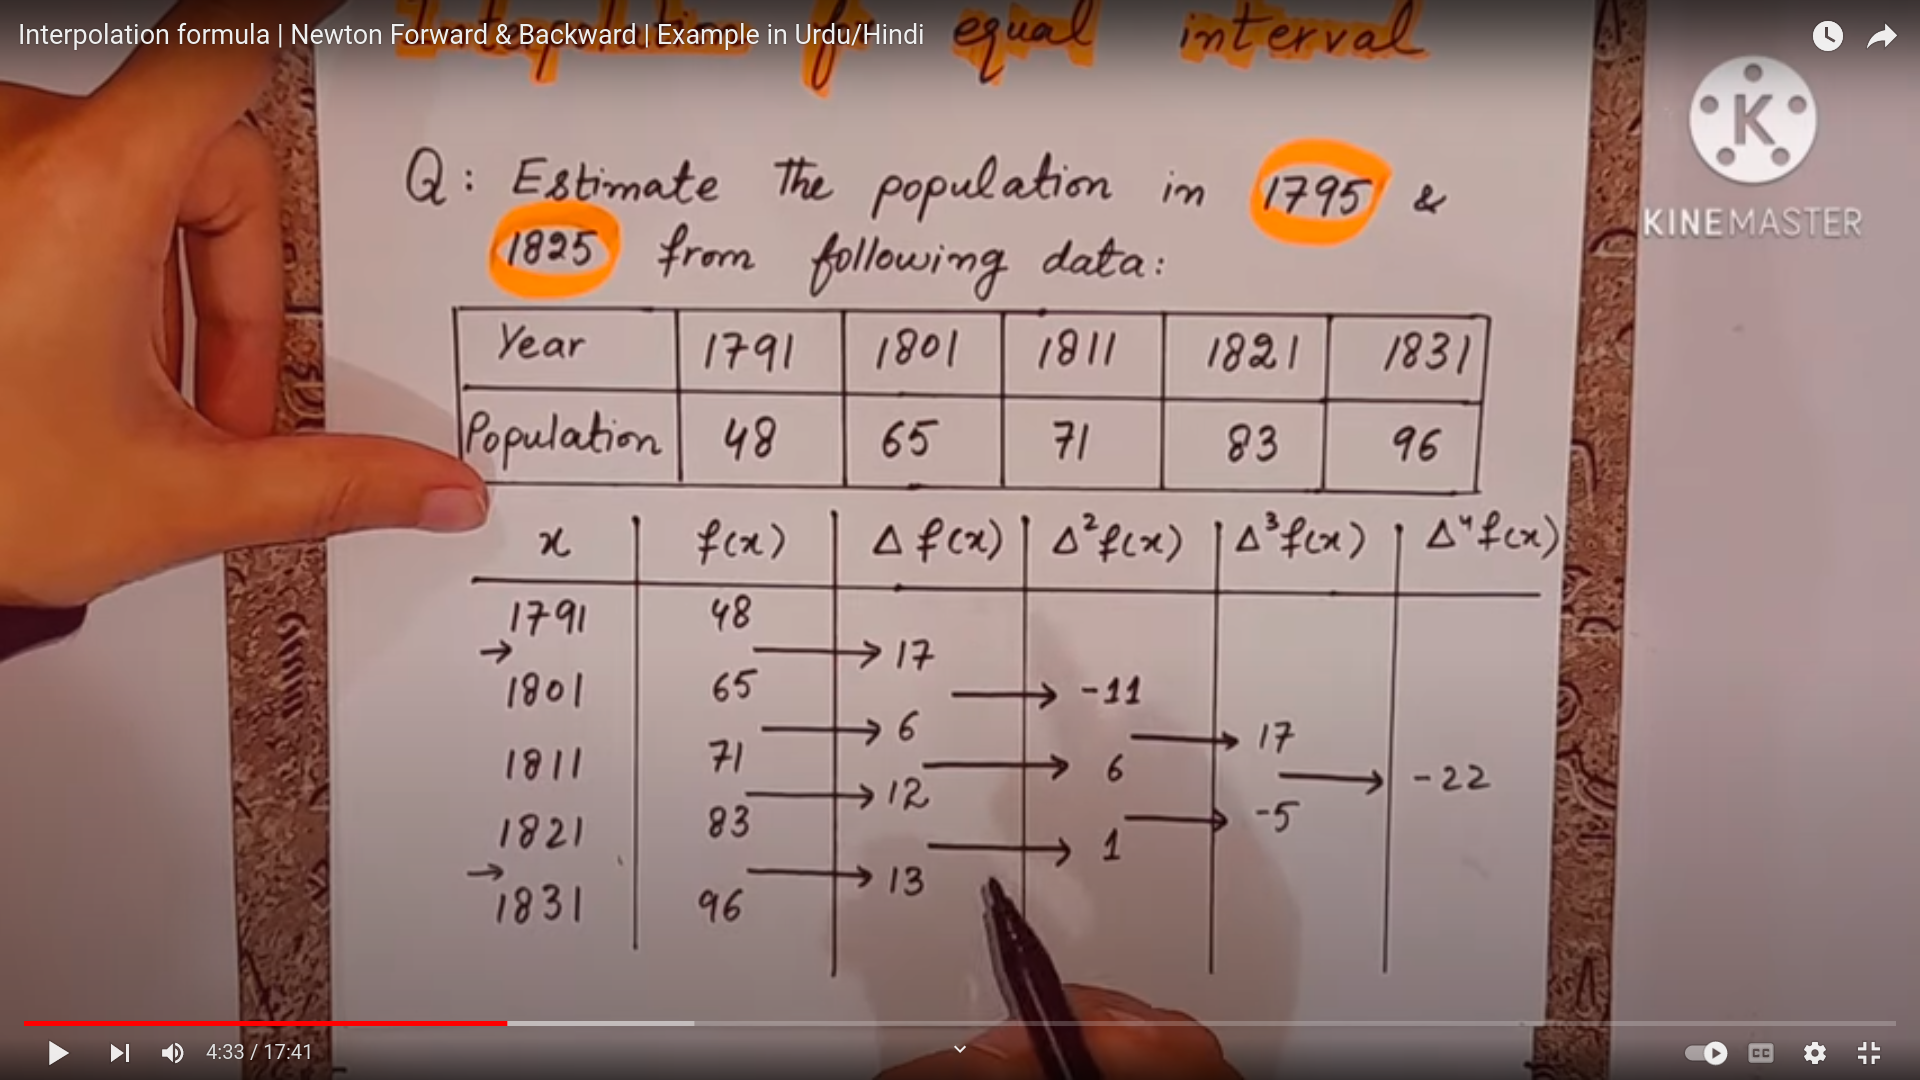 Interpolation formula | Newton Forward & Backward | Example in Urdu/Hindi
Interpolation for equal interval
K
KINEMASTER
Q: Estimate the population in 1795 &
1825 from following data:
Year 1791 1801 1811 1821 1831
Population 48 65 71 83 96
x f(x) Δ f(x) Δ²f(x) Δ³f(x) Δ⁴f(x)
1791 48
→ → 17
1801 65 → -11
→ 6 → 17
1811 71 → 6 → -22
→ 12 → -5
1821 83 → 1
→ → 13
1831 96
4:33 / 17:41
CC